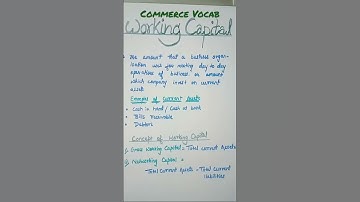 COMMERCE VOCAB
Working Capital
The amount that a business organ-
isation used for meeting day to day
operations of business or amount
which company invest on current
asset
Example of Current Assets
Cash in hand / Cash at bank
Bills Receivable
Debtors
Concept of Working Capital
1) Gross Working Capital = Total current Assets
2) Networking Capital =
Total Current Assets - Total current
liabilities